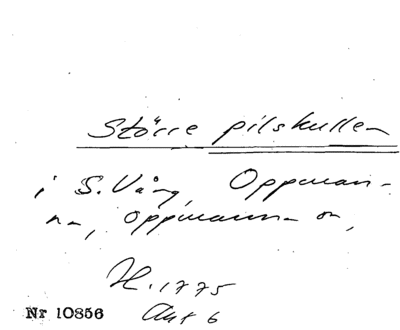 Större pilskullen
i S. Vång, Oppman-
na, Oppmanna sn,
H. 1775
Akt 6
Nr 10856